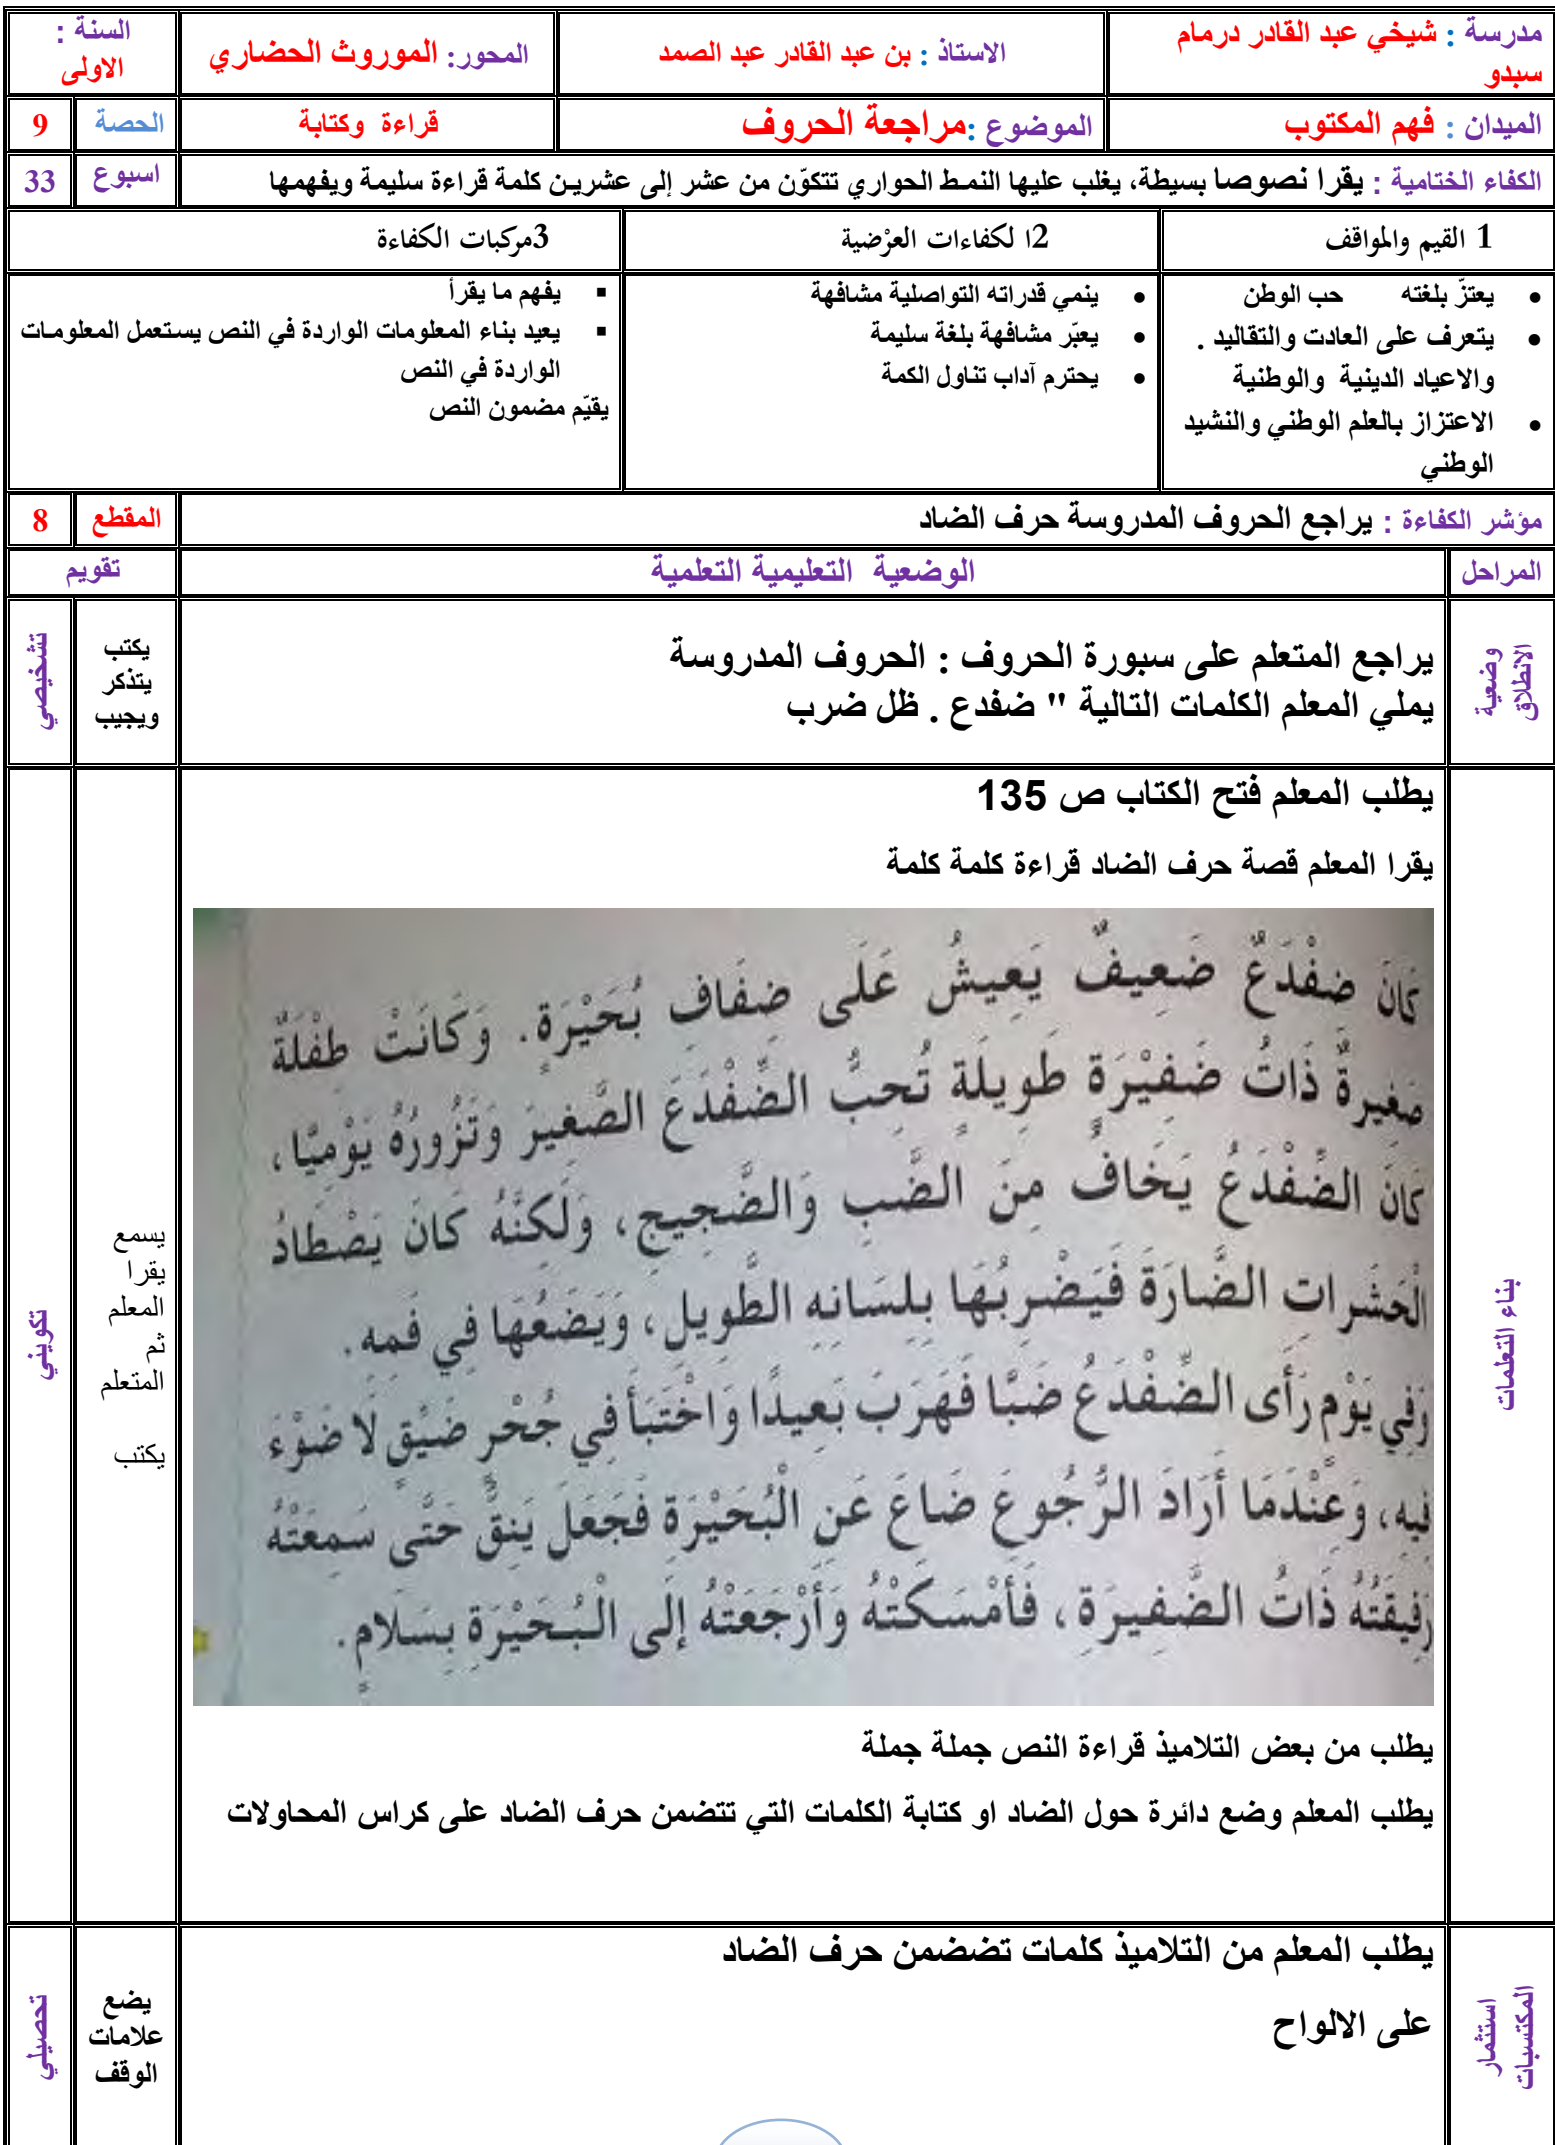 مدرسة : شيخي عبد القادر درمام
سبدو
الاستاذ : بن عبد القادر عبد الصمد
المحور: الموروث الحضاري
السنة :
الاولى
الميدان : فهم المكتوب
الموضوع :مراجعة الحروف
قراءة وكتابة
الحصة
9
الكفاء الختامية : يقرا نصوصا بسيطة، يغلب عليها النمط الحواري تتكوّن من عشر إلى عشرين كلمة قراءة سليمة ويفهمها
اسبوع
33
1 القيم والمواقف
2ا لكفاءات العرْضية
3مركبات الكفاءة
• يعتزّ بلغته حب الوطن
• يتعرف على العادت والتقاليد .
والاعياد الدينية والوطنية
• الاعتزاز بالعلم الوطني والنشيد
الوطني
• ينمي قدراته التواصلية مشافهة
• يعبّر مشافهة بلغة سليمة
• يحترم آداب تناول الكمة
▪ يفهم ما يقرأ
▪ يعيد بناء المعلومات الواردة في النص يستعمل المعلومات
الواردة في النص
يقيّم مضمون النص
مؤشر الكفاءة : يراجع الحروف المدروسة حرف الضاد
المقطع
8
المراحل
الوضعية التعليمية التعلمية
تقويم
وضعية
الانطلاق
يراجع المتعلم على سبورة الحروف : الحروف المدروسة
يملي المعلم الكلمات التالية " ضفدع . ظل ضرب
يكتب
يتذكر
ويجيب
تشخيصي
بناء التعلمات
يطلب المعلم فتح الكتاب ص 135
يقرا المعلم قصة حرف الضاد قراءة كلمة كلمة
كَانَ ضِفْدَعٌ ضَعِيفٌ يَعِيشُ عَلَى ضِفَافِ بُحَيْرَةٍ. وَكَانَتْ طِفْلَةٌ
صَغِيرَةٌ ذَاتُ ضَفِيْرَةٍ طَوِيلَةٍ تُحِبُّ الضِّفْدَعَ الصَّغِيرَ وَتَزُورُهُ يَوْمِيًّا،
كَانَ الضِّفْدَعُ يَخَافُ مِنَ الضَّبِ وَالضَّجِيجِ، وَلَكِنَّهُ كَانَ يَصْطَادُ
الْحَشَرَاتِ الضَّارَةَ فَيَضْرِبُهَا بِلِسَانِهِ الطَّوِيلِ، وَيَضَعُهَا فِي فَمِهِ.
وَفِي يَوْمٍ رَأَى الضِّفْدَعُ ضَبًّا فَهَرَبَ بَعِيدًا وَاخْتَبَأَ فِي جُحْرٍ ضَيِّقٍ لَا ضَوْءَ
فِيهِ، وَعِنْدَمَا أَرَادَ الرُّجُوعَ ضَاعَ عَنِ الْبُحَيْرَةِ فَجَعَلَ يَنِقُّ حَتَّى سَمِعَتْهُ
رَفِيقَتُهُ ذَاتُ الضَّفِيرَةِ، فَأَمْسَكَتْهُ وَأَرْجَعَتْهُ إِلَى الْبُحَيْرَةِ بِسَلَامٍ.
يطلب من بعض التلاميذ قراءة النص جملة جملة
يطلب المعلم وضع دائرة حول الضاد او كتابة الكلمات التي تتضمن حرف الضاد على كراس المحاولات
يسمع
يقرا
المعلم
ثم
المتعلم
يكتب
تكويني
استثمار
المكتسبات
يطلب المعلم من التلاميذ كلمات تضضمن حرف الضاد
على الالواح
يضع
علامات
الوقف
تحصيلي